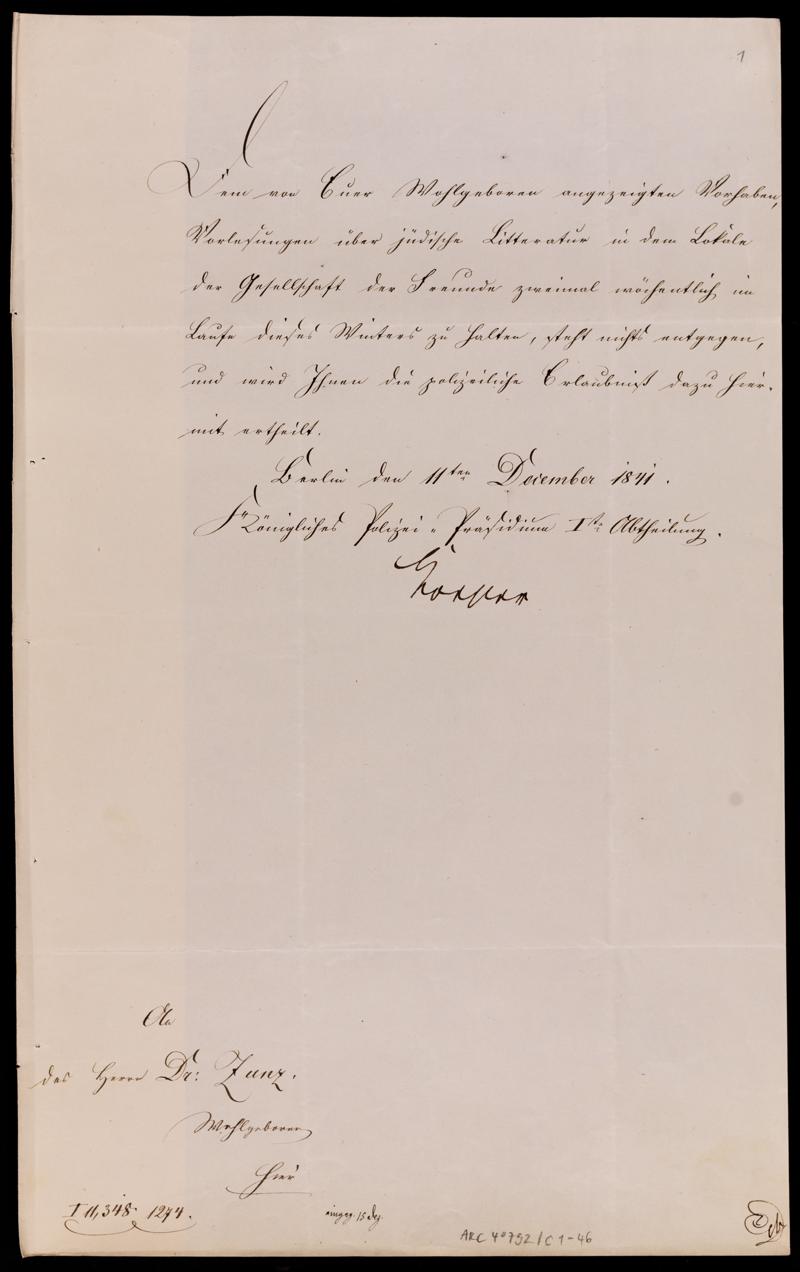 1
Dem von Euer Wohlgeboren angezeigten Vorhaben,
Vorlesungen über jüdische Litteratur in dem Lokale
der Gesellschaft der Freunde zweimal wöchentlich im
Laufe dieses Winters zu halten, steht nichts entgegen,
und wird Ihnen die polizeiliche Erlaubniß dazu hier-
mit ertheilt.
Berlin den 11ten December 1841.
Königliches Polizei-Präsidium Ite Abtheilung.
An
des Herrn Dr: Zunz.
Wohlgeboren
hier
I 11,348. 1274.
eingeg. 15 Dez.
ARC 4° 792/C1-46